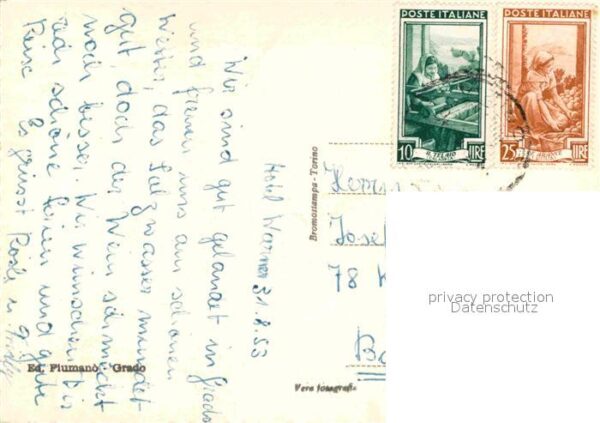 Hotel Warner 31.8.53
Wir sind gut gelandet in Grado
und freuen uns am schönen
Wetter, das Salzwasser mundet
gut, doch der Wein schmeckt
noch besser. Wir wünschen Dir
schöne Ferien und gute
Reise
Es grüsst Rösli u.
Ed. Fiumanò - Grado
Bromostampa - Torino
Vera fotografia
POSTE ITALIANE
10 LIRE
POSTE ITALIANE
25 LIRE
Herrn
Josef
78
privacy protection
Datenschutz